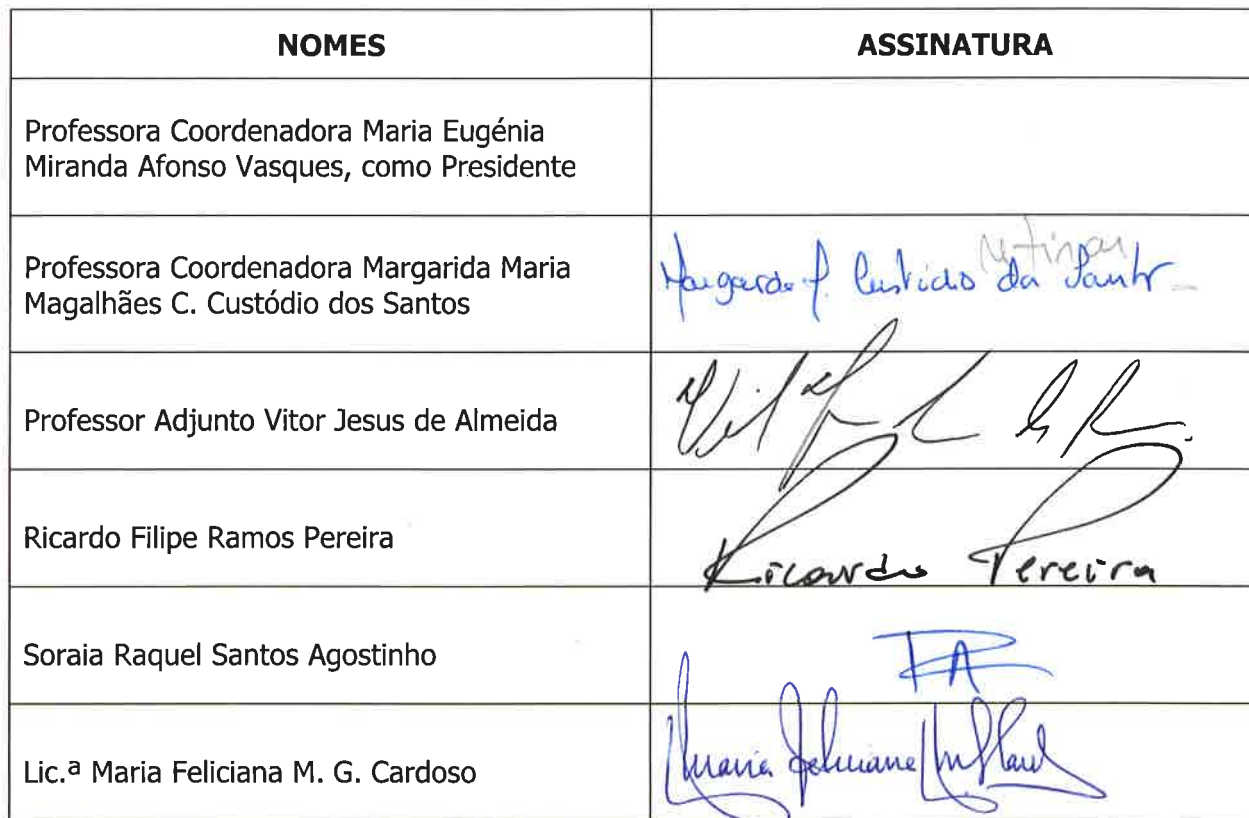 NOMES ASSINATURA
Professora Coordenadora Maria Eugénia
Miranda Afonso Vasques, como Presidente
Professora Coordenadora Margarida Maria
Magalhães C. Custódio dos Santos
Professor Adjunto Vitor Jesus de Almeida
Ricardo Filipe Ramos Pereira
Ricardo Pereira
Soraia Raquel Santos Agostinho
Lic.ª Maria Feliciana M. G. Cardoso
Maria Feliciana